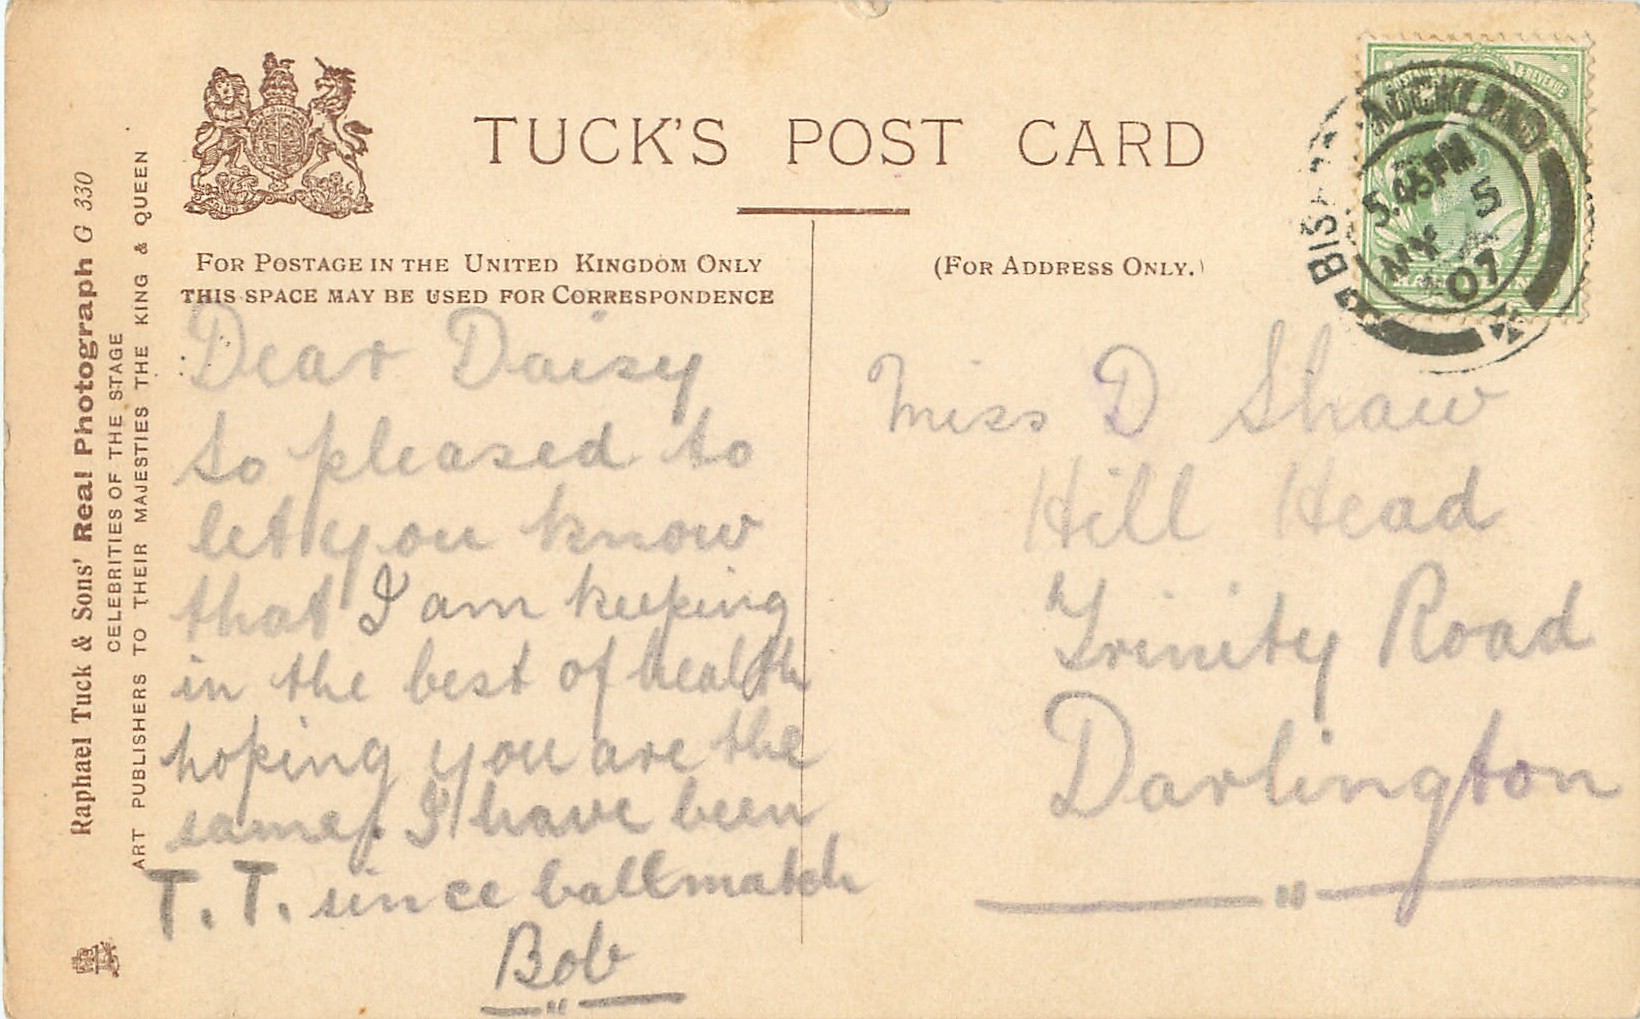 TUCK'S POST CARD
FOR POSTAGE IN THE UNITED KINGDOM ONLY
THIS SPACE MAY BE USED FOR CORRESPONDENCE
(FOR ADDRESS ONLY.)
Raphael Tuck & Sons' Real Photograph G 330
CELEBRITIES OF THE STAGE
ART PUBLISHERS TO THEIR MAJESTIES THE KING & QUEEN
Dear Daisy
so pleased to
let you know
that I am keeping
in the best of health
hoping you are the
same, I have been
T. T. since ballmatch
Bob
Miss D Shaw
Hill Head
Trinity Road
Darlington
& REVENUE
AUCKLAND
5.45PM
MY 5
07